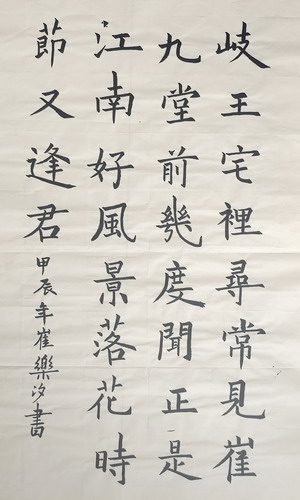 岐王宅裡尋常見崔
九堂前幾度聞正是
江南好風景落花時
節又逢君
甲辰年崔樂汐書